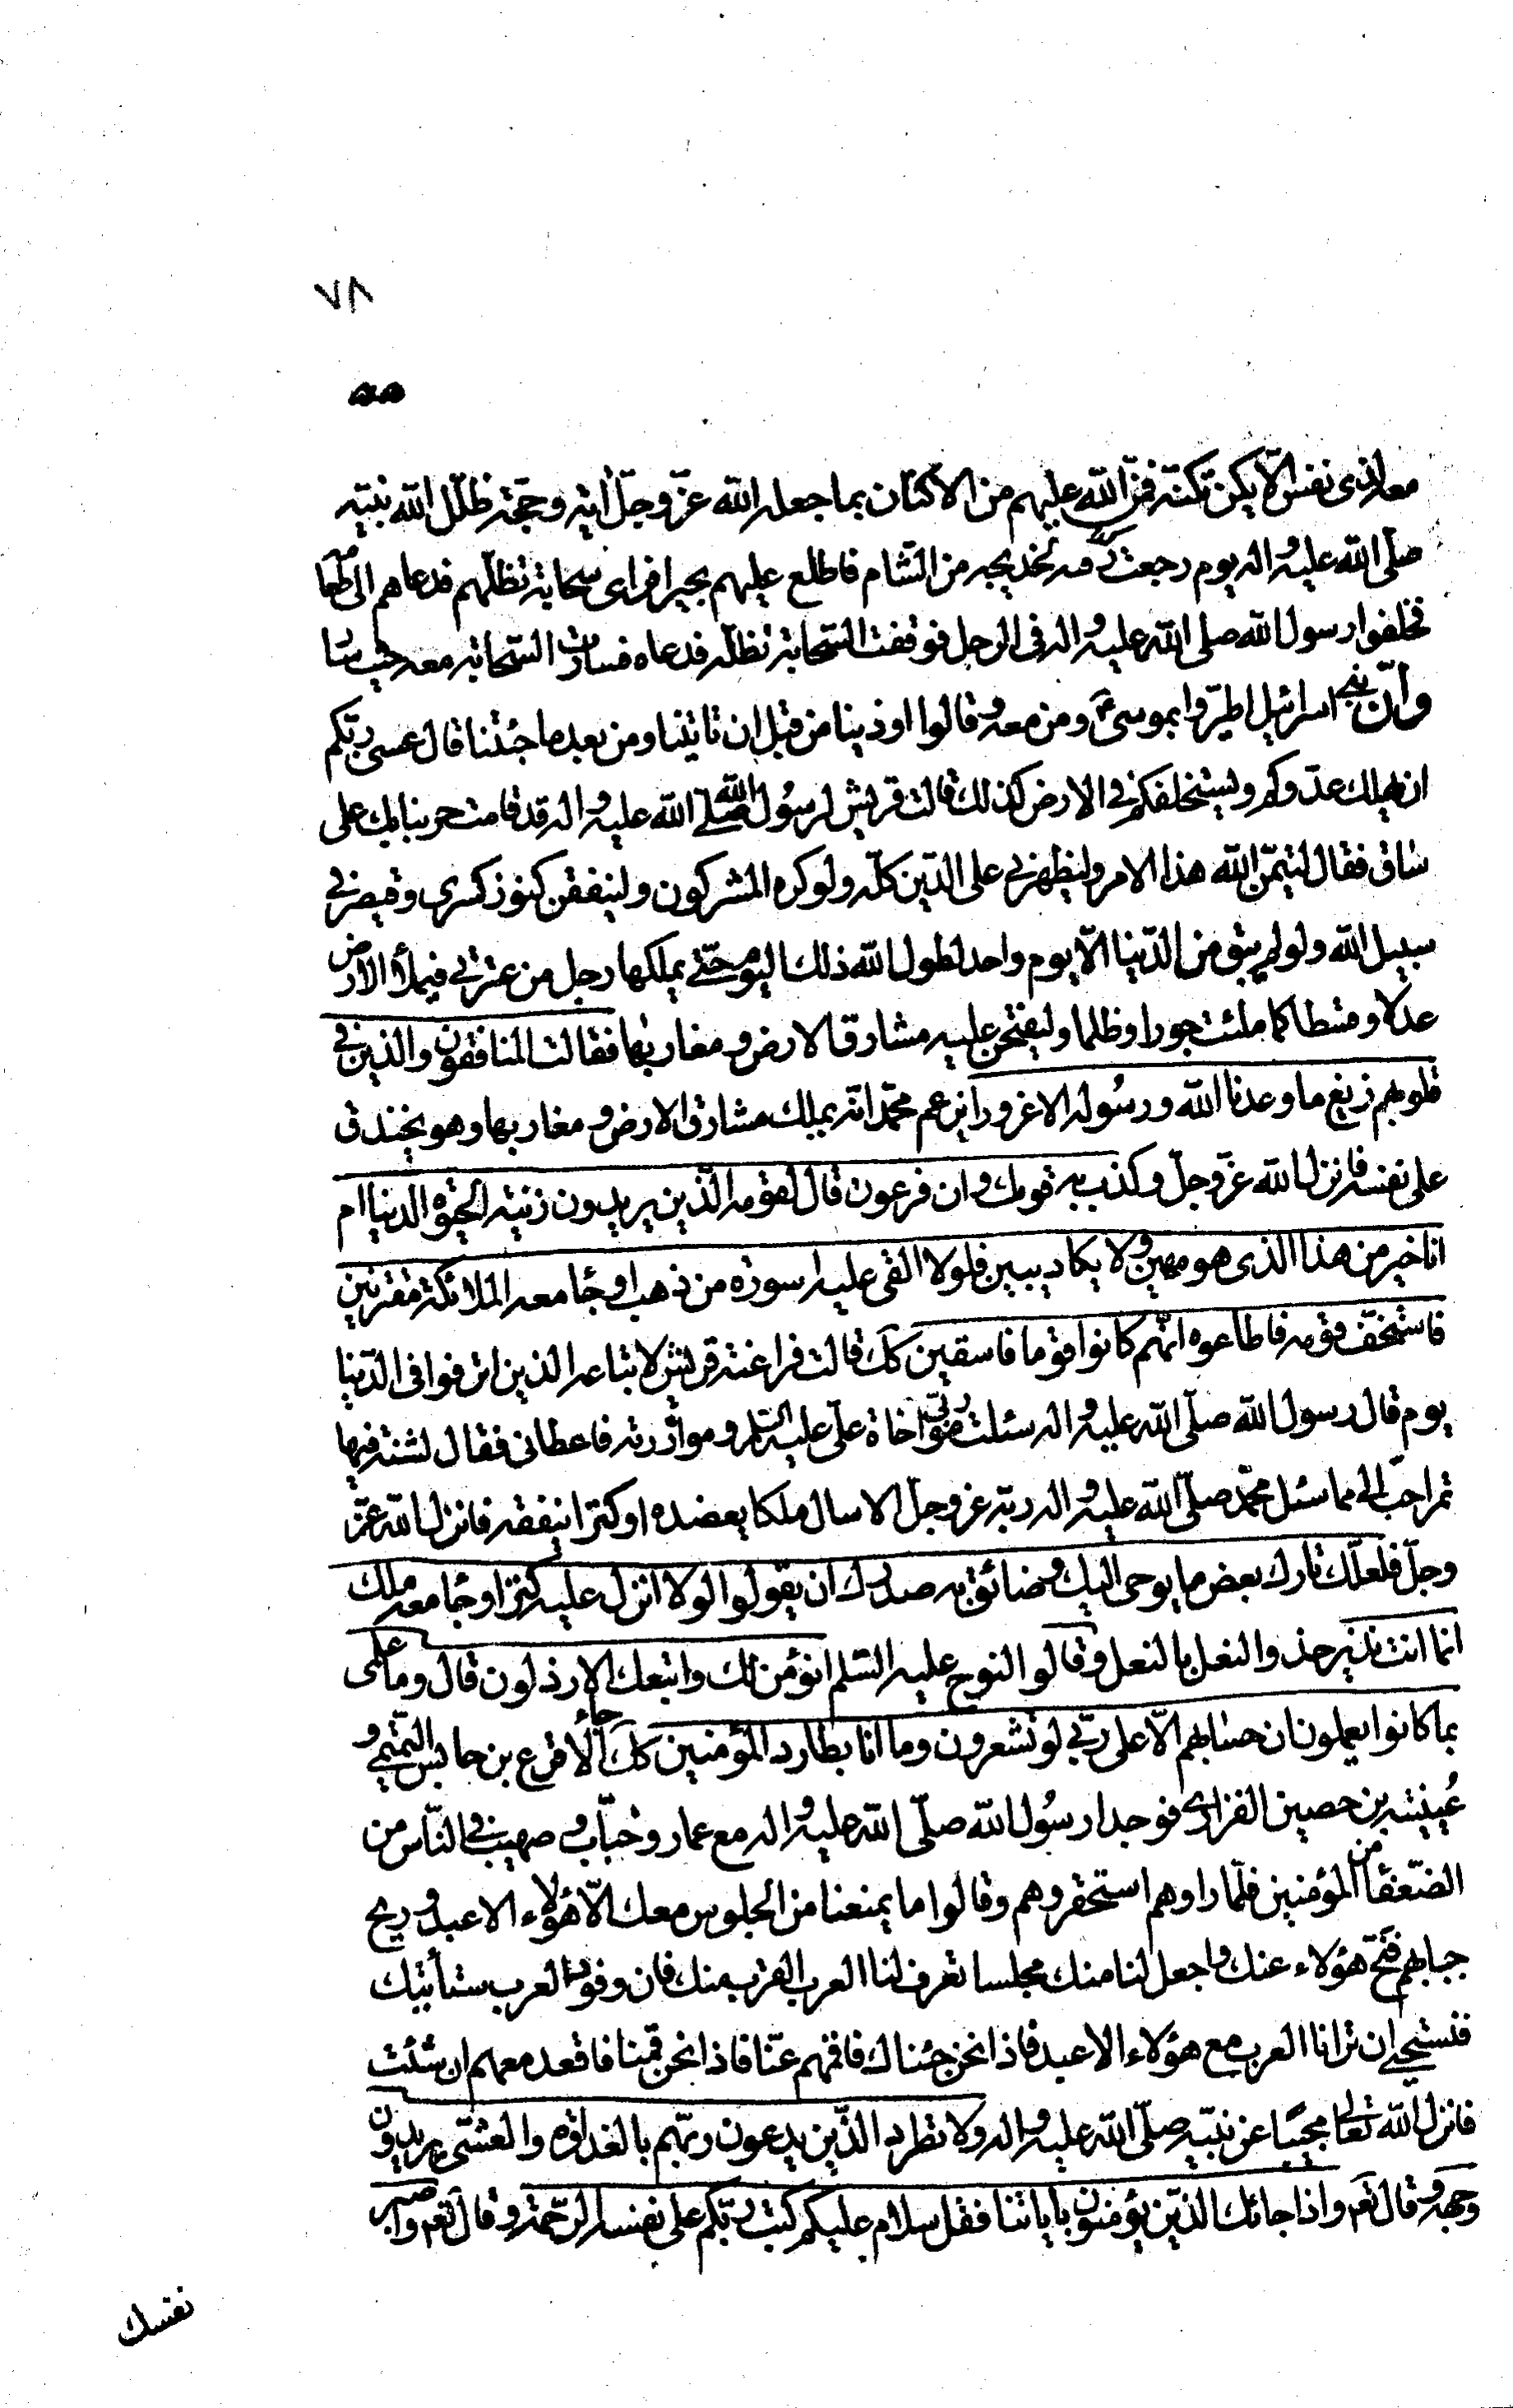 ٧٨
معاذى نفس الا يكن تكنته فمن الله عليهم من الاكنان بما جعله الله عز وجل اية وحجة ظلل الله نبيه
صلى الله عليه واله يوم رجعت نخديجه من الشام فاطلع عليهم بحيرا فراى سحابة تظلهم فدعاهم الى طعام
فخلفوا رسول الله صلى الله عليه واله فى الرحل فوقفت السحابة تظله فدعاه فسارت السحابة معه حيث سار
وان بنى اسرائيل اطيروا بموسى ع ومن معه وقالوا اوذينا من قبل ان تاتينا ومن بعد ما جئتنا قال عسى ربكم
ان يهلك عدوكم ويستخلفكم فى الارض كذلك قالت قريش لرسول الله صلى الله عليه واله قد قامت حربنا بك على
ساق فقال ليتمن الله هذا الامر وليظهرنى على الدين كله ولو كره المشركون ولينفقن كنوز كسرى وقيصر فى
سبيل الله ولو لم يبق من الدنيا الا يوم واحد لطول الله ذلك اليوم حتى يملكها رجل من عترتى فيملأ الارض
عدلا وقسطا كما ملئت جورا وظلما وليفتحن عليه مشارق الارض ومغاربها فقالت المنافقون والذين فى
قلوبهم زيغ ما وعدنا الله ورسوله الا غرورا يزعم محمد انه يملك مشارق الارض ومغاربها وهو يخندق
على نفسه فانزل الله عز وجل وكذب به قومك وان فرعون قال لقومه الذين يريدون زينة الحيوة الدنيا ام
انا خير من هذا الذى هو مهين ولا يكاد يبين فلولا القى عليه اسورة من ذهب او جاء معه الملائكة مقترنين
فاستخف قومه فاطاعوه انهم كانوا قوما فاسقين كك قالت فراعنة قريش لاتباعه الذين اترفوا فى الدنيا
يوم قال رسول الله صلى الله عليه واله سئلت ربى مواخاة على عليه السلم وموازرته فاعطانى فقال لشنة فيها
تمر احب الى مما سئل محمد صلى الله عليه واله ربه عز وجل الا سال ملكا يعضده او كنزا ينفقه فانزل الله عز
وجل فلعلك تارك بعض ما يوحى اليك وضائق به صدرك ان يقولوا لولا انزل عليه كنز او جاء معه ملك
انما انت نذير حذو النعل بالنعل وقالوا لنوح عليه السلم انؤمن لك واتبعك الارذلون قال وما علمى
بما كانوا يعملون ان حسابهم الا على ربى لو تشعرون وما انا بطارد المؤمنين كك جاء الاقرع بن حابس التميمى و
عيينة بن حصين الفزارى فوجدا رسول الله صلى الله عليه واله مع عمار وخباب وصهيب فى الناس من
الضعفا من المؤمنين فلما راوهم استحقروهم وقالوا ما يمنعنا من الجلوس معك الا هؤلاء الاعبد وريح
جبابهم فنح هؤلاء عنك واجعل لنا منك مجلسا تعرف لنا العرب القرب منك فان وفود العرب ستأتيك
فنستحى ان ترانا العرب مع هؤلاء الاعبد فاذا نحن جئناك فاقمهم عنا فاذا نحن قمنا فاقعد معهم ان شئت
فانزل الله تعالى مجيبا عن نبيه صلى الله عليه واله ولا تطرد الذين يدعون ربهم بالغداوة والعشى يريدون
وجهه وقال تعم واذا جائك الذين يؤمنون باياتنا فقل سلام عليكم كتب ربكم على نفسه الرحمة وقال تعم واصبر
نفسك